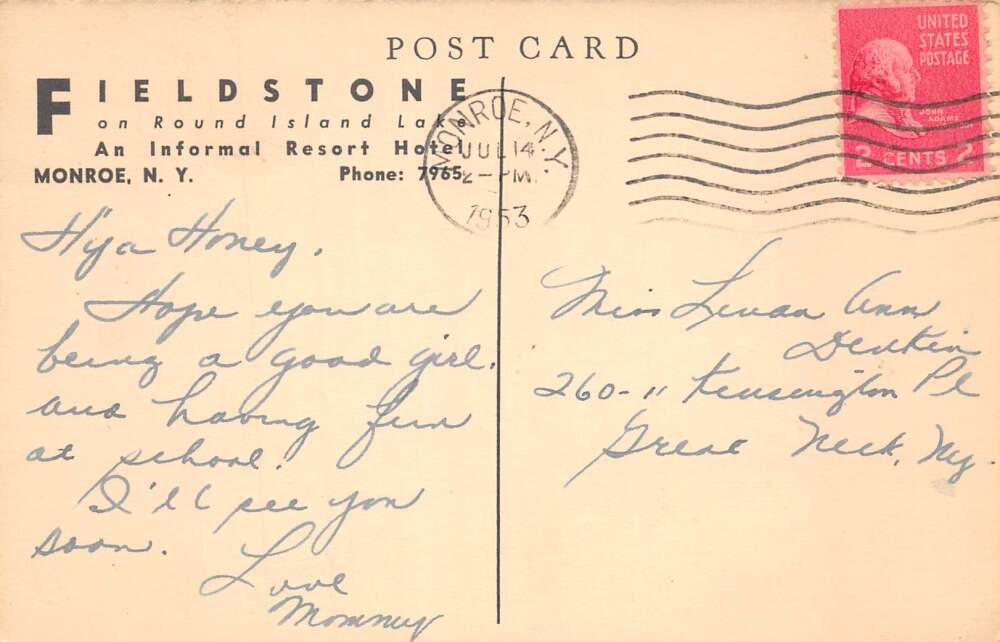 POST CARD
FIELDSTONE
on Round Island Lake
An Informal Resort Hotel
MONROE, N. Y. Phone: 7965
MONROE, N.Y.
JUL 14
2 - PM
1953
UNITED
STATES
POSTAGE
JOHN
ADAMS
2 CENTS 2
Hi'ya Honey,
Hope you are
being a good girl,
and having fun
at school.
I'll see you
soon.
Love
Mommy
Miss Linda Ann
260-11 Kensington Pl
Great Neck, Ny